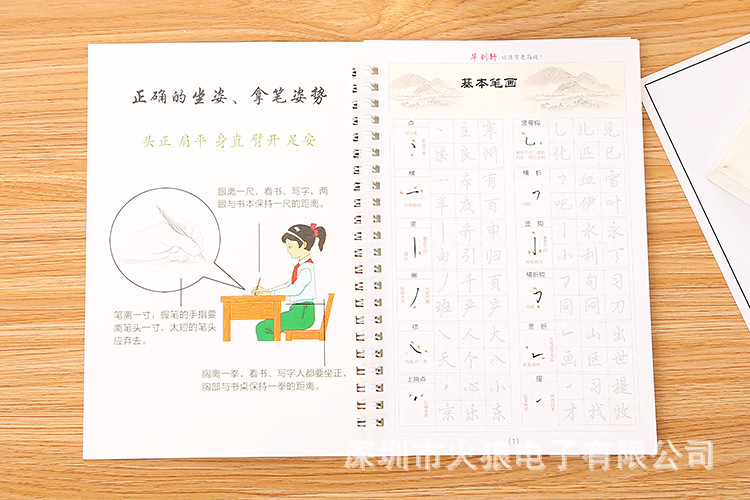 正确的坐姿、拿笔姿势
头正 肩平 身直 臂开 足安
眼离一尺，看书、写字，两
眼与书本保持一尺的距离。
笔离一寸，握笔的手指要
离笔头一寸，太短的笔头
应弃去。
胸离一拳，看书、写字人都要坐正，
胸部与书桌保持一拳的距离。
华剑轩 让练字更高效！
基本笔画
点 丶 主 寒 竖弯钩 乚 儿 见
梁 良 州 化 匹 已
横 一 本 有 横折 𠃍 血 雷
半 友 百 吧 伊 叶
竖 丨 中 审 竖钩 亅 水 永
由 引 归 小 利 丁
撇 丿 千 页 横折钩 𠃌 句 习
班 升 产 同 问 刀
捺 ㇏ 人 大 竖折 𠃊 山 出
天 个 八 画 区 世
上挑点 心 小 提 ㇀ 习 提
京 乐 东 才 找 牧
(1)
深圳市火狼电子有限公司